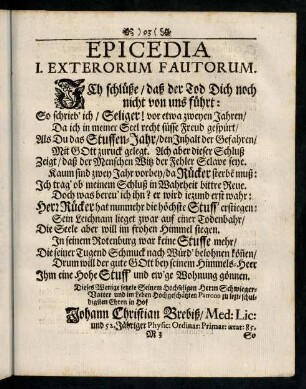 ) 03 (
EPICEDIA
I. EXTERORUM FAUTORUM.
Ich schlüße / daß der Tod Dich noch
nicht von uns führt:
So schrieb' ich / Seliger! vor etwa zweyen Jahren /
Da ich in meiner Seel recht süsse Freud gespürt /
Als Du das Stuffen-Jahr / den Inhalt der Gefahren /
Mit GOtt zurück gelegt. Ach aber dieser Schluß
Zeigt / daß der Menschen Witz der Fehler Sclave seye.
Kaum sind zwey Jahr vorbey / da Rücker sterbē muß:
Ich trag' ob meinem Schluß in Wahrheit bittre Reue.
Doch was bereu' ich ihn? er wird iezund erst wahr:
Herr Rücker hat nunmehr die höchste Stuff erstiegen:
Sein Leichnam lieget zwar auf einer Todenbahr /
Die Seele aber will im frohen Himmel siegen.
In seinem Rotenburg war keine Stuffe mehr /
Die seiner Tugend Schmuck nach Würd' belohnen köñen /
Drum will der gute GOtt bey seinem Himmels-Heer
Ihm eine Hohe Stuff und ew'ge Wohnung gönnen.
Dieses Wenige setzete Seinem Hochseligen Herrn Schwieger-
Vatter und im Leben Hochgeschätzten Patrono zu letzt schul-
digsten Ehren in Hof
Johann Christian Brebiß / Med: Lic:
und 52. Jähriger Physic: Ordinar: Primar: ætat: 85.
M 3 So